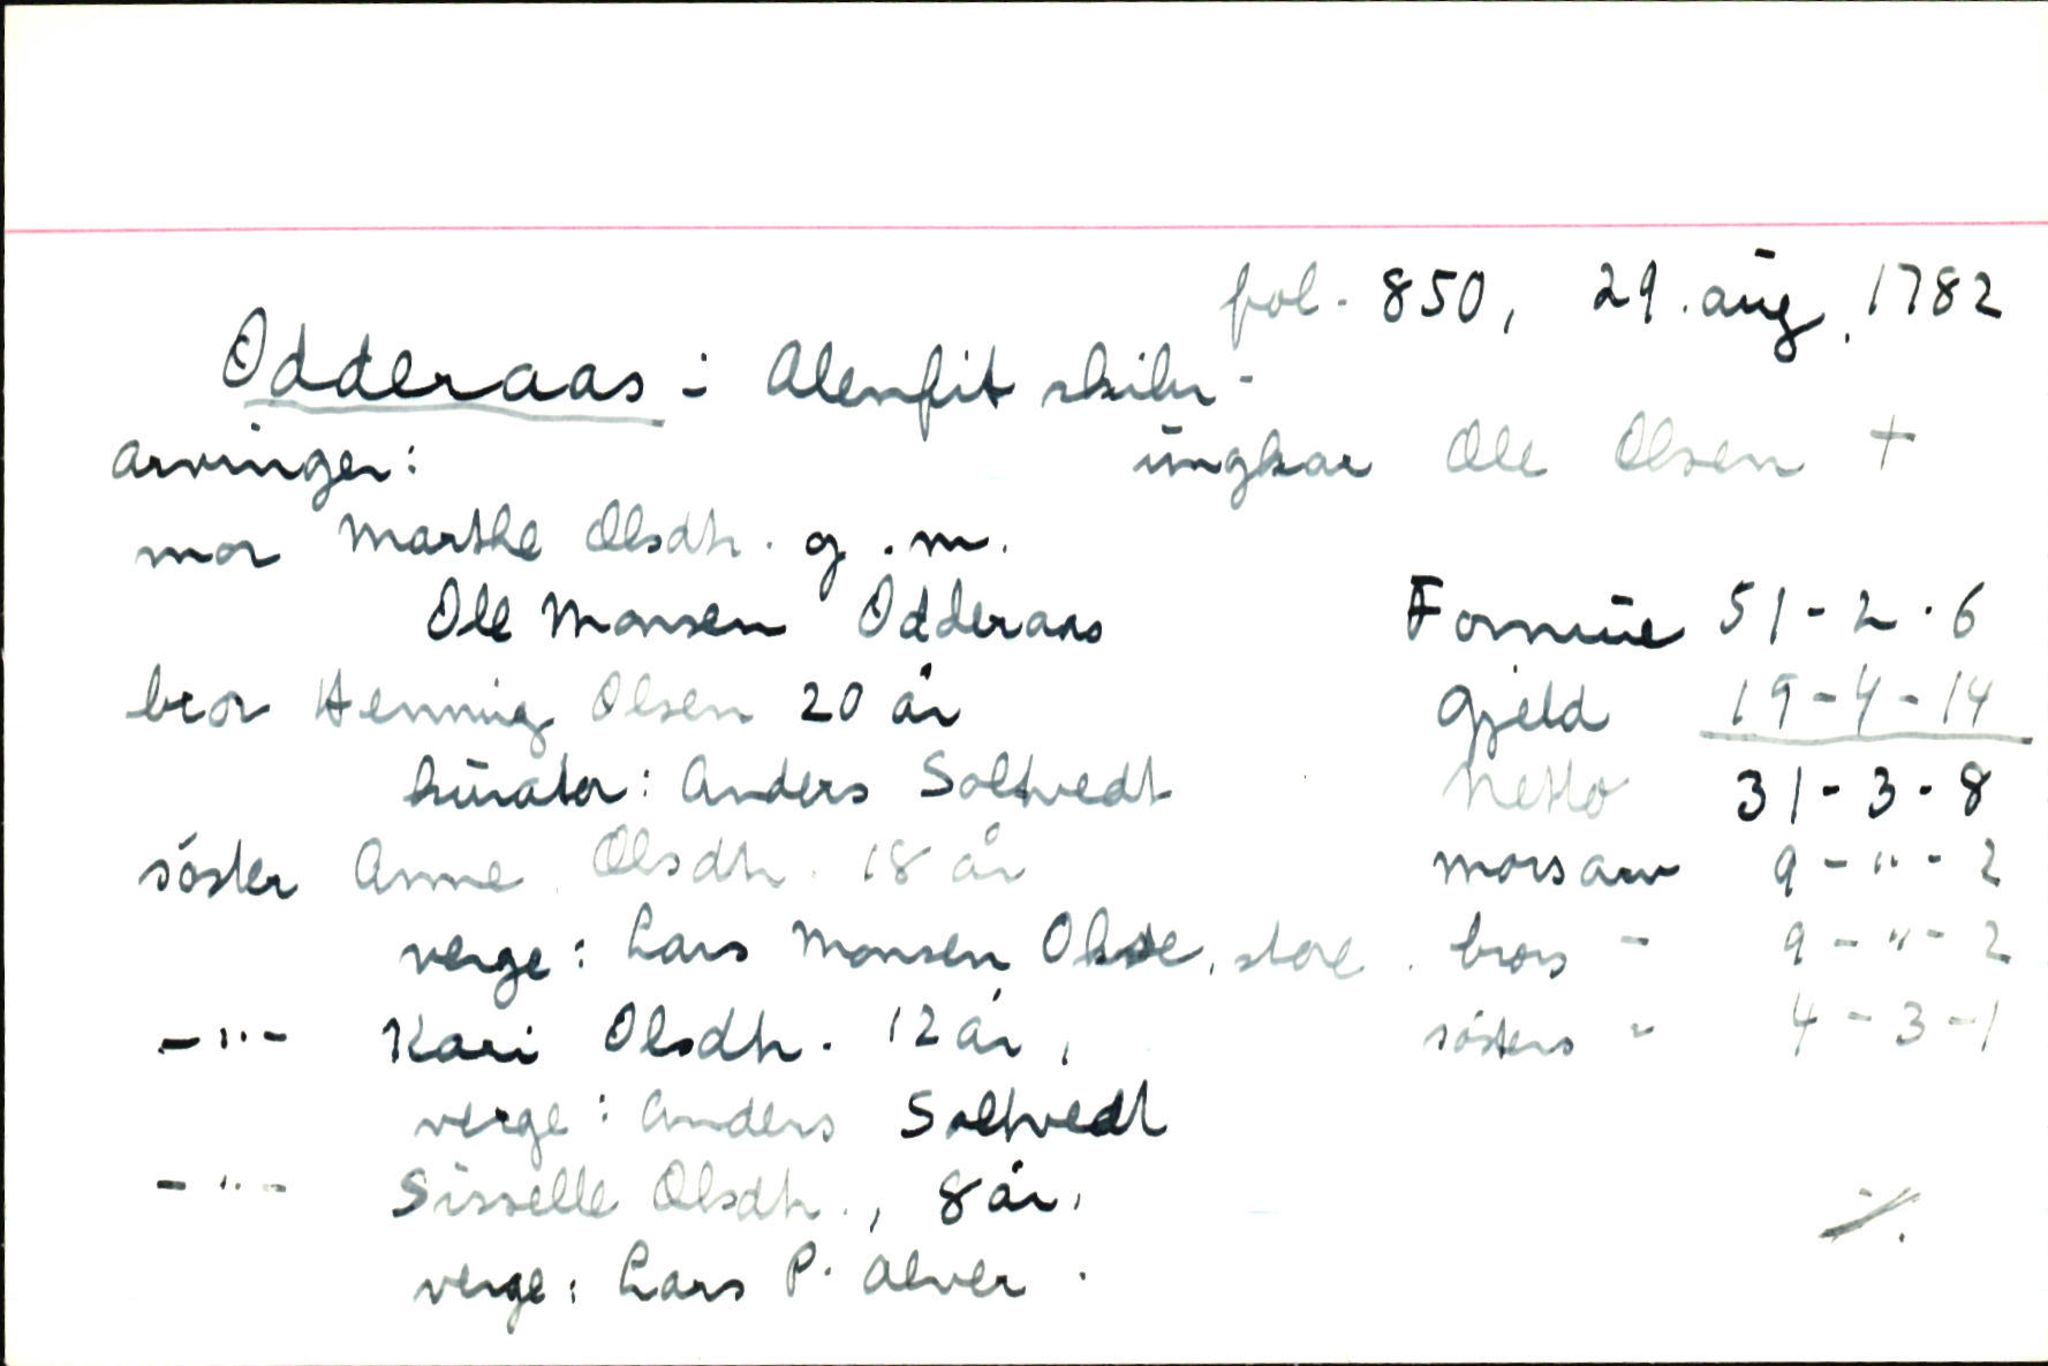 fol. 850, 29. aug. 1782
Odderaas i Alenfit skibr.
arvinger:
ungkar Ole Olsen +
mor Marthe Olsdtr. g.m.
Ole Monsen Odderaas
Formue 51-2-6
bror Henning Olsen 20 år
Gjeld 19-4-14
kurator: Anders Soltvedt
Netto 31-3-8
söster Anne Olsdtr. 18 år
morsarv 9-"-2
verge: Lars Monsen store.
brors - 9-"-2
-"- Kari Olsdtr. 12 år,
sösters - 4-3-1
verge: Anders Soltvedt
-"- Sisselle Olsdtr., 8 år,
verge: Lars P. Alver.
./.